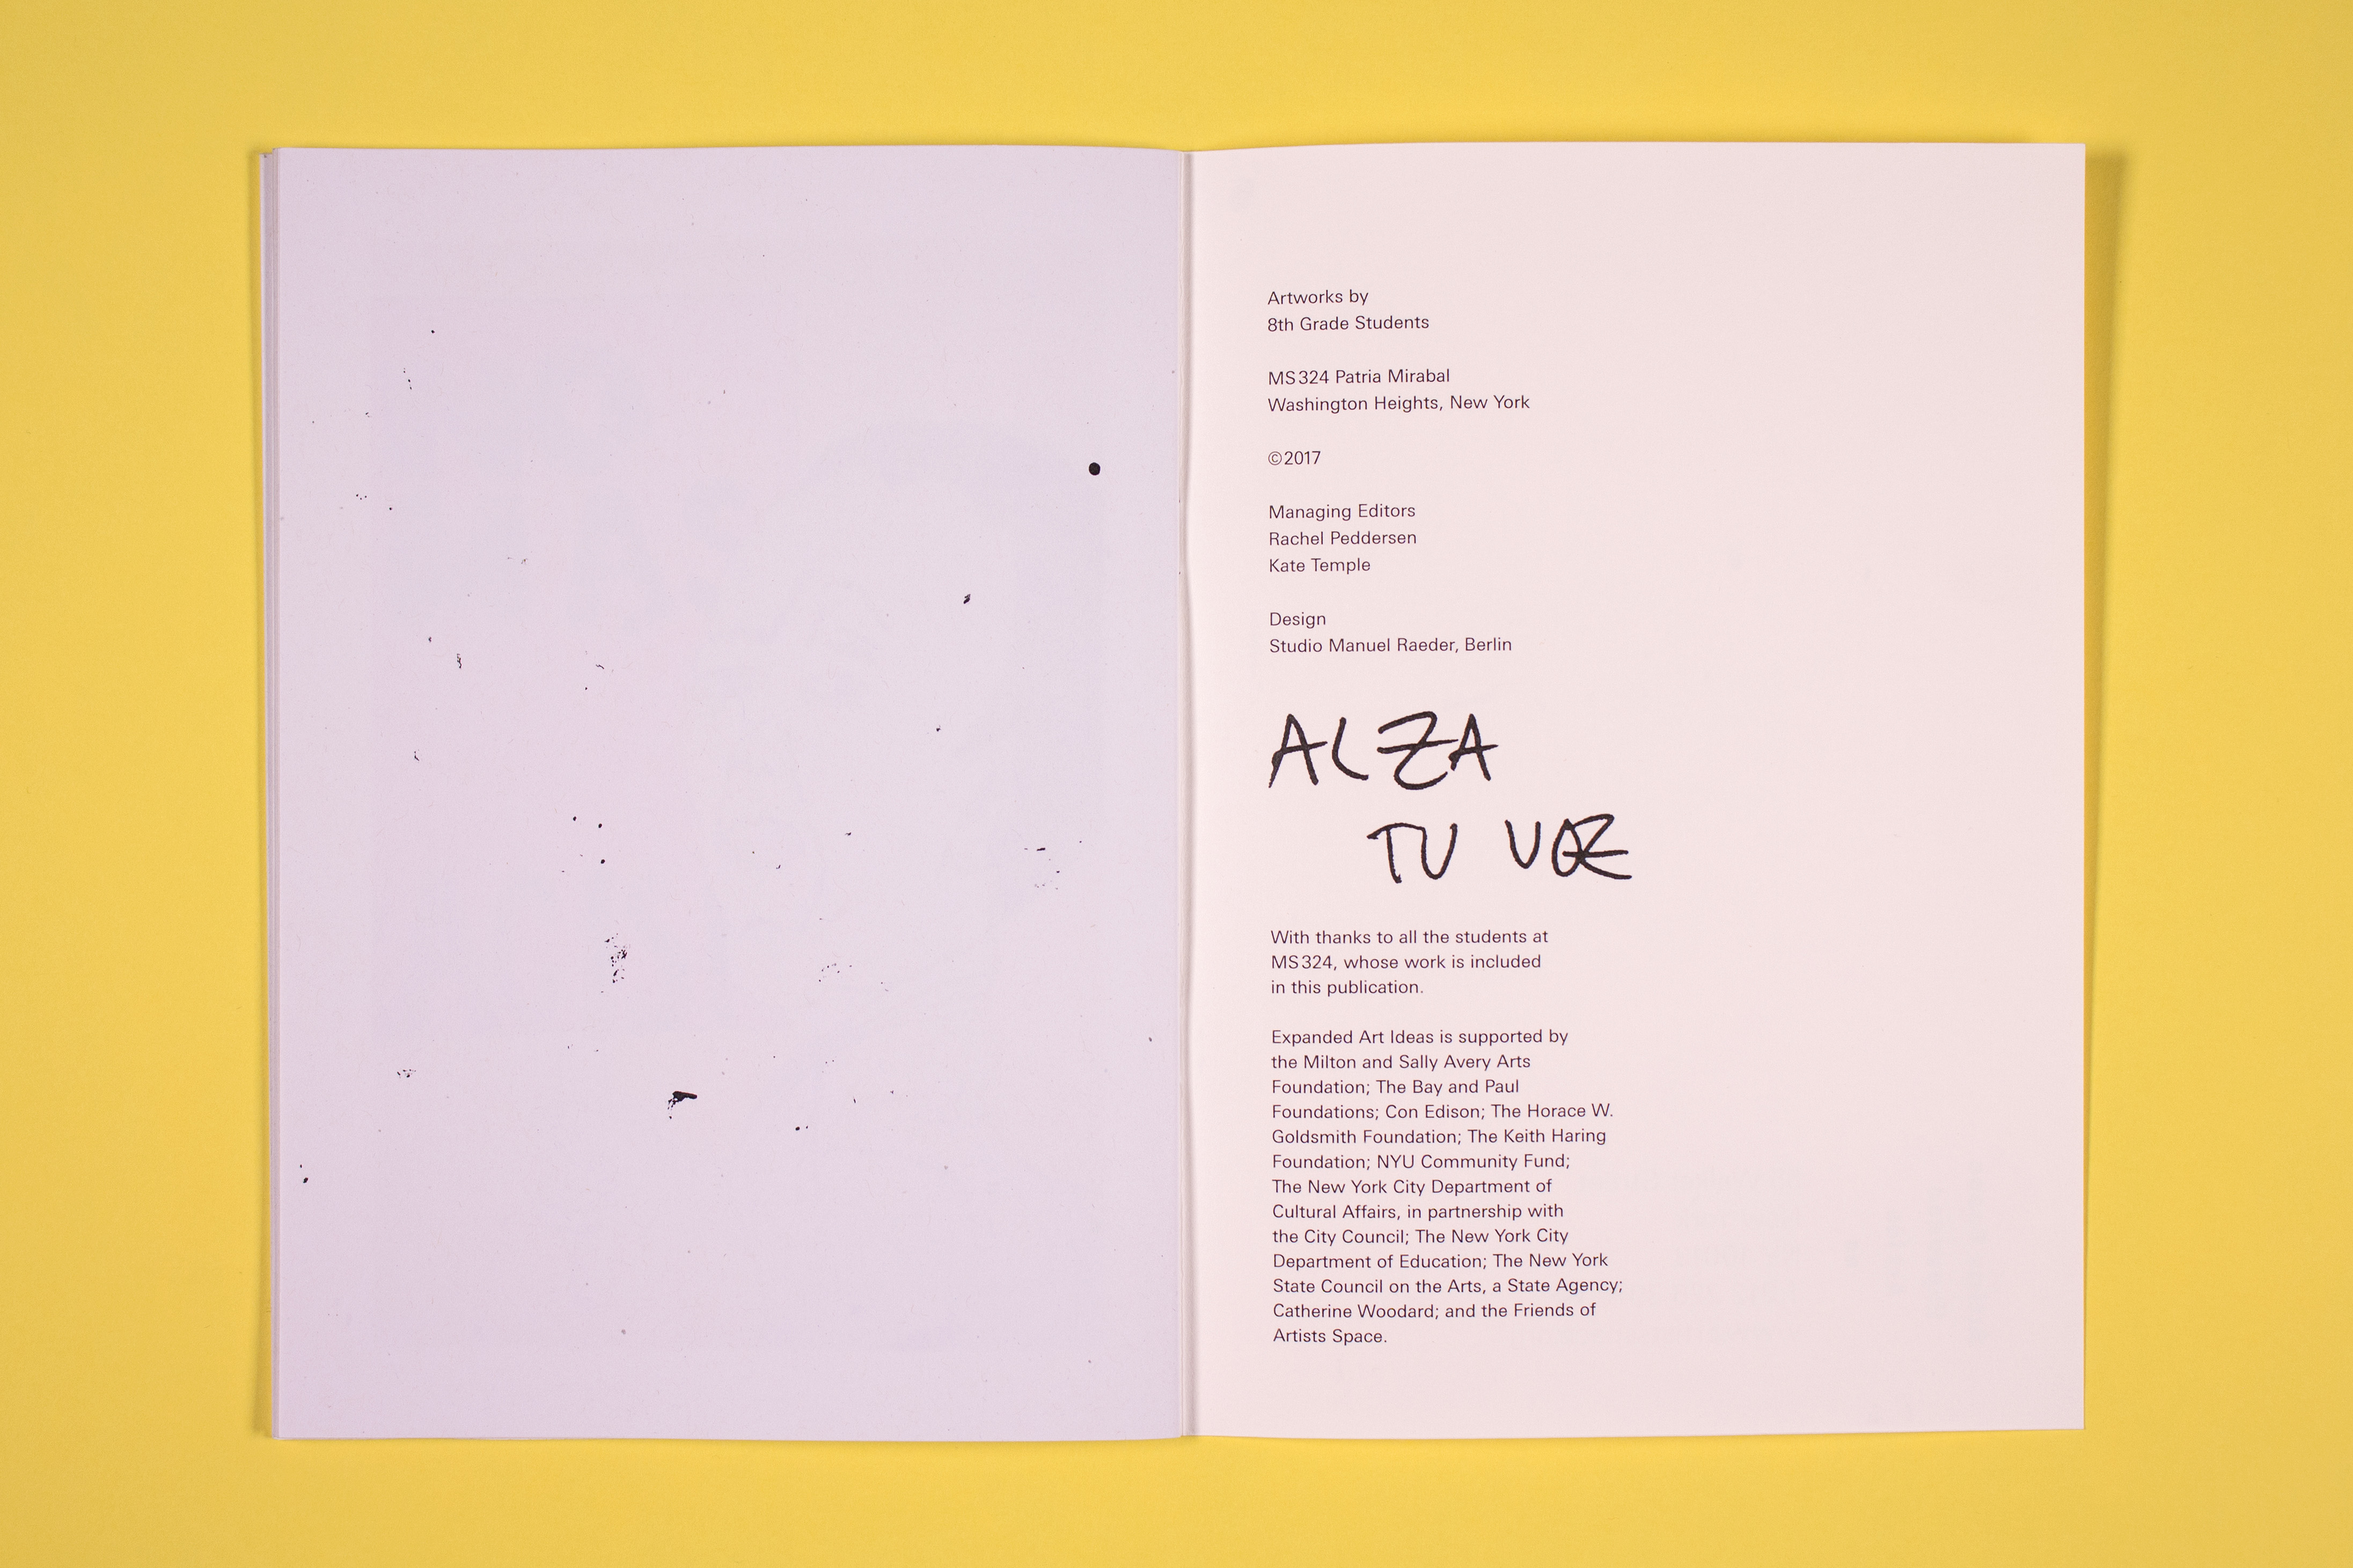 Artworks by
8th Grade Students
MS 324 Patria Mirabal
Washington Heights, New York
©2017
Managing Editors
Rachel Peddersen
Kate Temple
Design
Studio Manuel Raeder, Berlin
ALZA
TU VOZ
With thanks to all the students at
MS 324, whose work is included
in this publication.
Expanded Art Ideas is supported by
the Milton and Sally Avery Arts
Foundation; The Bay and Paul
Foundations; Con Edison; The Horace W.
Goldsmith Foundation; The Keith Haring
Foundation; NYU Community Fund;
The New York City Department of
Cultural Affairs, in partnership with
the City Council; The New York City
Department of Education; The New York
State Council on the Arts, a State Agency;
Catherine Woodard; and the Friends of
Artists Space.